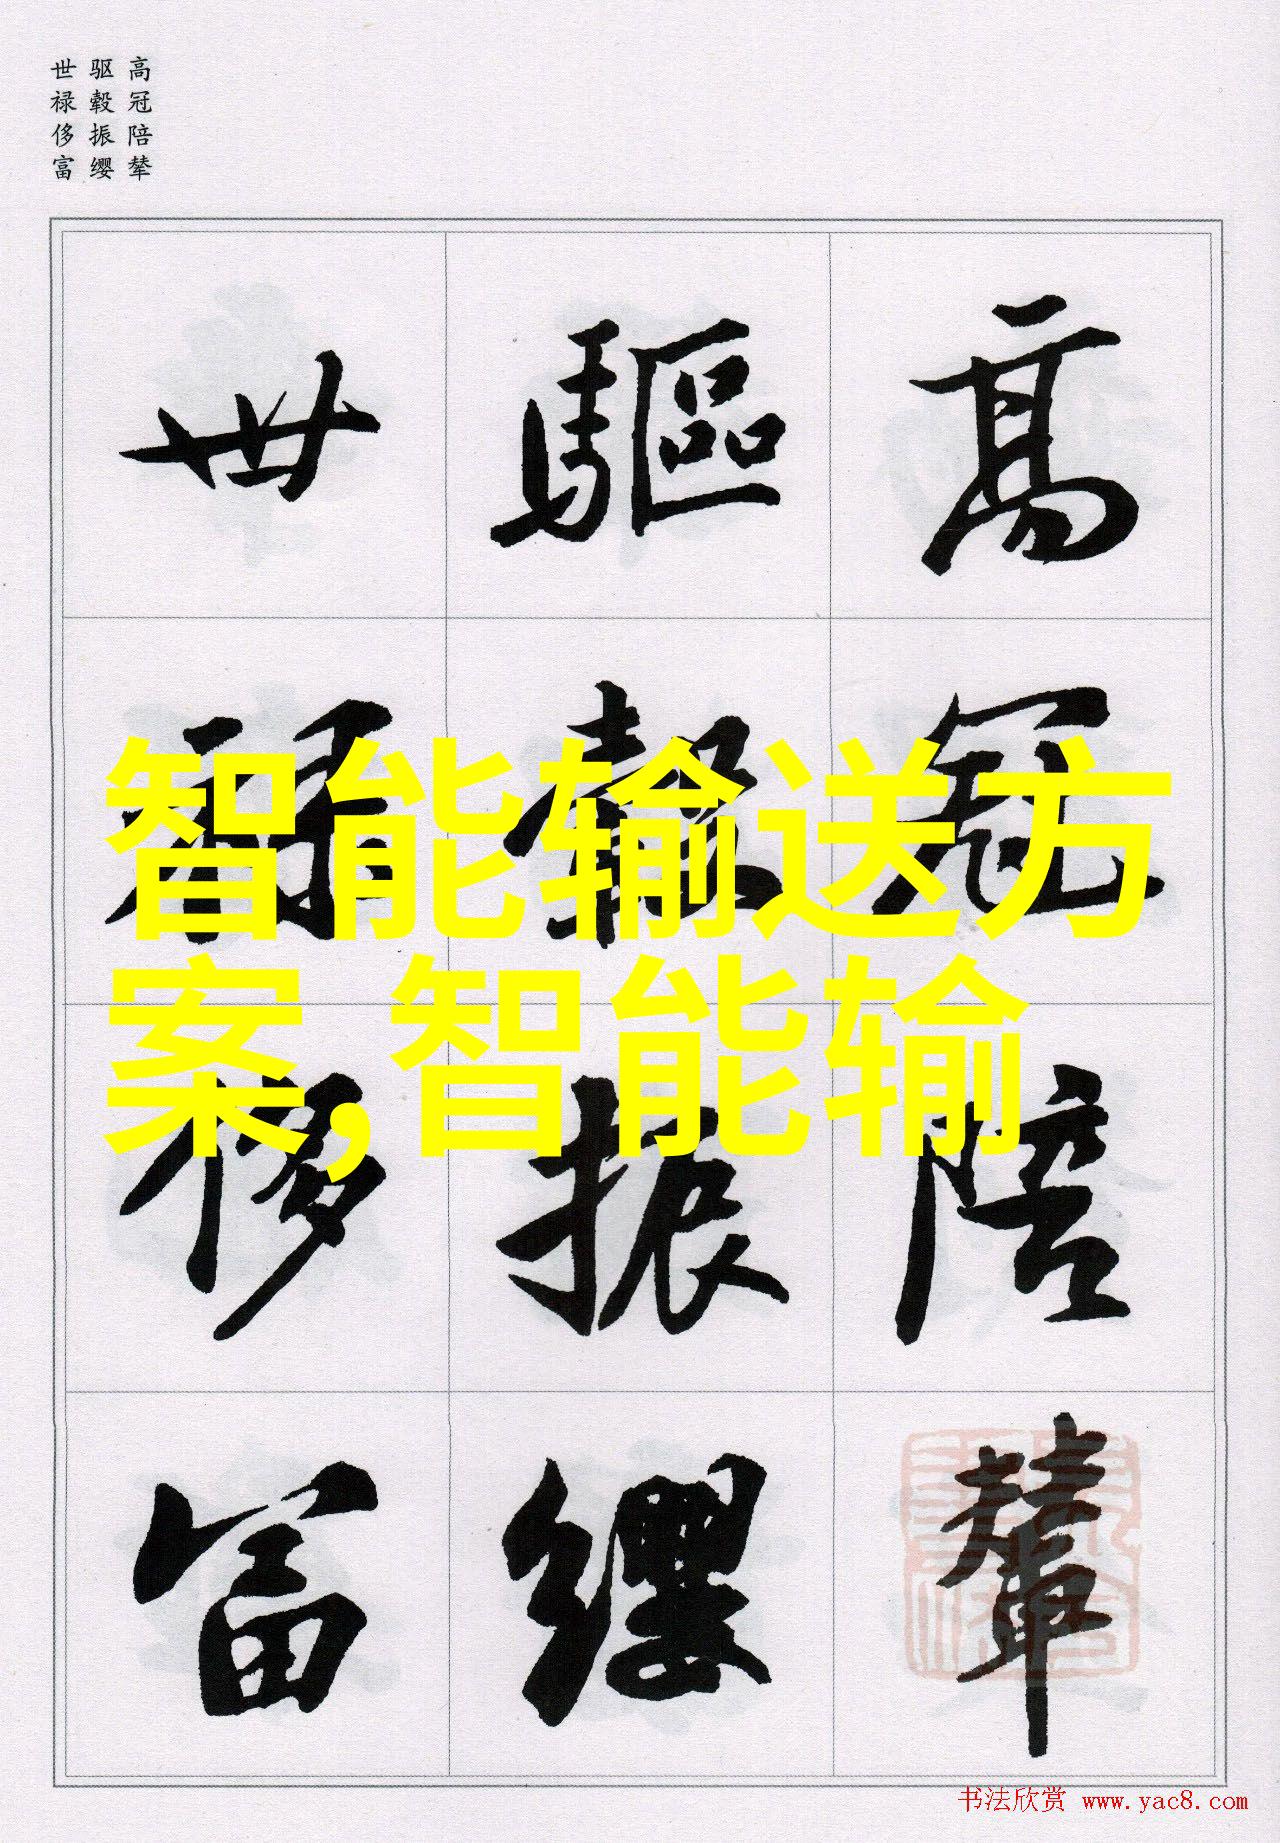 高冠陪辇
驱毂振缨
世禄侈富
高冠陪輦
驅轂振纓
世祿侈富
智能输送方
案,智能输
书法欣赏 www.yac8.com